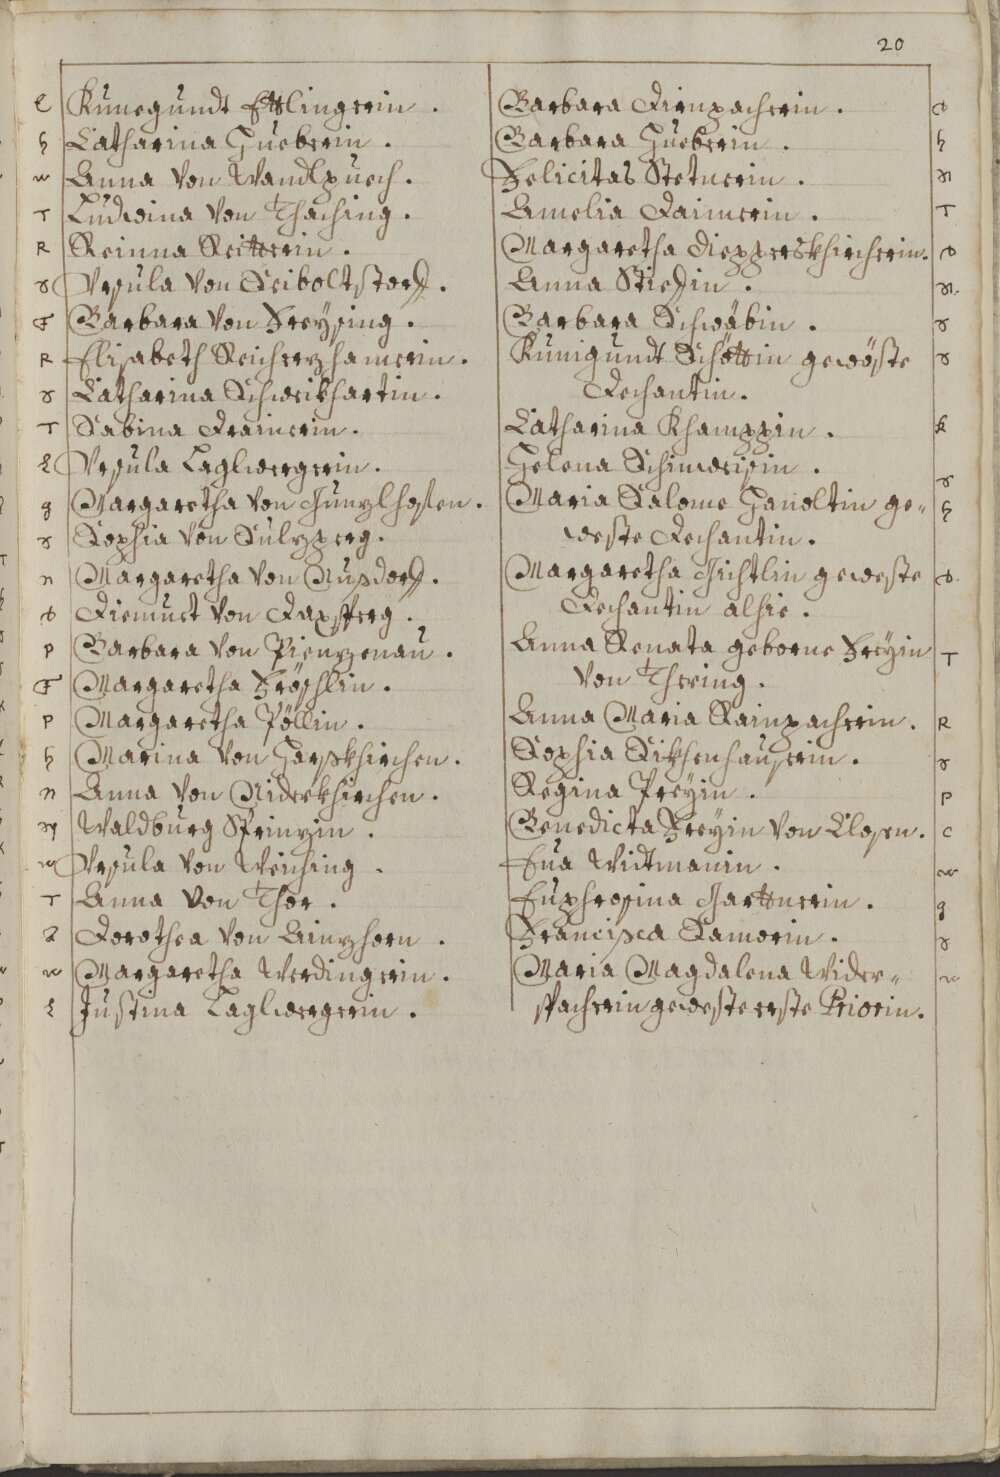 20
e Kunegundt Ettlingerin .
h Catharina Hueberin .
w Anna von Wandlpuech .
T Ludwina von Thaching .
R Reinna Reitterin .
s Vrsula von Seiboltstorff .
F Barbara von Freysing .
R Elisabeth Reicherzhamerin .
s Catharina Schweikhartin .
T Sabina Trainerin .
L Vrsula Taglwergerin .
g Margaretha von Gunzlhofen .
s Sophia von Sulzperg .
n Margaretha von Nusdorff .
d Diemuet von Daxsperg .
p Barbara von Pienzenau .
F Margaretha Fröschlin .
P Margaretha Pöllin .
h Marina von Harskhirchen .
n Anna von Niderkhirchen .
Waldburg Sprinzin .
w Vrsula von Weiching .
T Anna von Thor .
a Dorothea von Ainzhorn .
w Margaretha Werdingerin .
L Justina Laglwergerin .
Barbara Dirnpacherin . d
Barbara Hueberin . h
Felicitas Stetnerin . st
Amelia Taimerin . T
Margaretha Diepperskhircherin . d
Anna Stiehsin . st
Barbara Schwäbin . s
Kunigundt Schöttin geweste s
Dechantin .
Catharina Khamppin . k
Helena Schinweisin . s
Maria Salome Hanoltin ge- h
weste Dechantin .
Margaretha Gichtlin geweste g
Dechantin alhie .
Anna Renata geborne Freyin T
von Thering .
Anna Maria Rainpacherin . R
Sophia Sikhenhauserin . s
Regina Preyin . P
Benedicta Freyin von Closen . c
Eua Widtmanin . w
Euphrosina Garttnerin . g
Francisca Samerin . s
Maria Magdalena Wider- w
spacherin geweste erste Priorin .